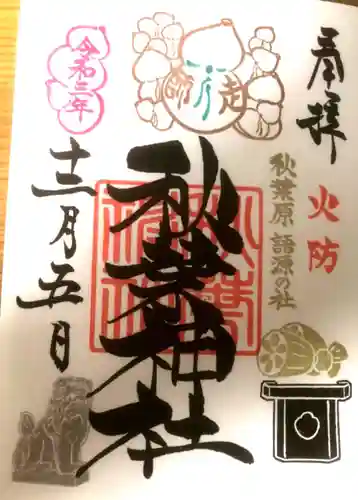 奉拝
火防
秋葉原 語源の社
秋葉神社
令和三年
十二月五日